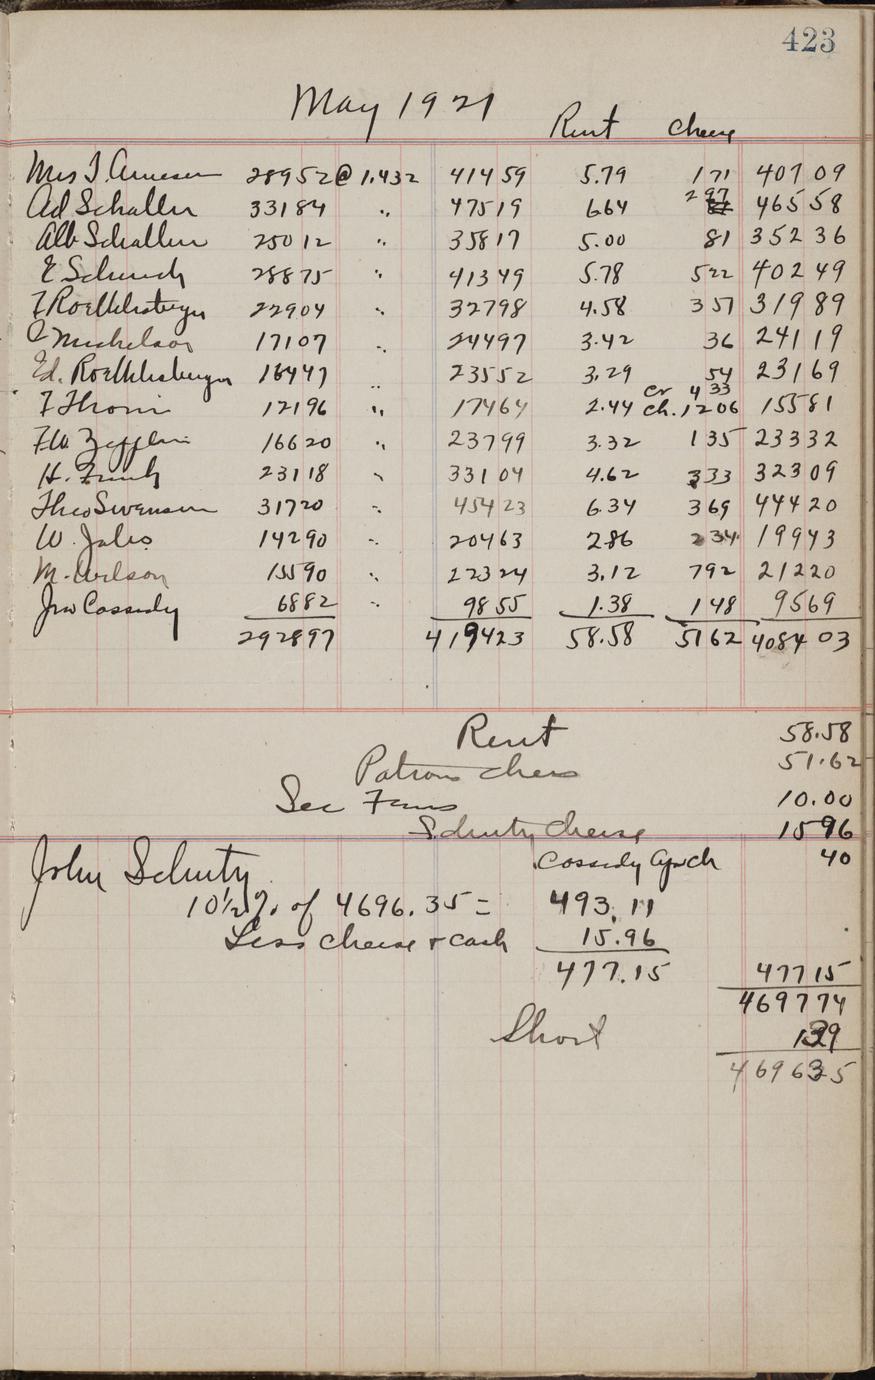 423
May 1921
Rent Cheese
Mrs I. Amesen 28952 @ 1.432 41459 5.79 171 40709
Ad Schaller 33184 " 47519 6.64 297 46558
Alb Schaller 25012 " 35817 5.00 81 35236
E Schmidy 28875 " 41349 5.78 522 40249
F Roethlisberger 22904 " 32798 4.58 351 31989
Mickelson 17107 " 24497 3.42 36 24119
Ed. Roethlisberger 16447 " 23552 3.29 54 23169
cr 433
F Throni 12196 " 17464 2.44 ch. 1206 15581
F.W. Zefflin 16620 " 23799 3.32 135 23332
H. Funk 23118 " 33104 4.62 333 32309
Theo Swensen 31720 " 45423 6.34 369 44420
W. Jahs 14290 " 20463 2.86 234 19943
M. Wilson 15590 " 22324 3.12 792 21220
Jno Cassidy 6882 " 9855 1.38 148 9569
292897 419423 58.58 5162 408403
Rent 58.58
Patrons chees 51.62
Sec Fees 10.00
Schutz Cheese 1596
John Schutz Cassidy 40
10½% of 4696.35 = 493.11
Less cheese + cash 15.96
477.15 47715
469774
Short 139
469635